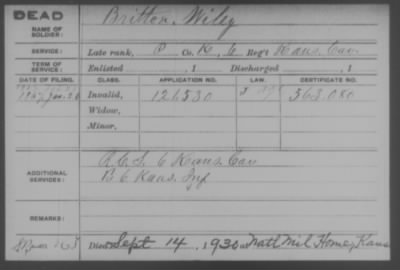 DEAD
NAME OF SOLDIER:
Britten, Wiley
SERVICE:
Late rank, P Co. K, 6 Reg't Kans. Cav.
TERM OF SERVICE:
Enlisted , 1 Discharged , 1
DATE OF FILING. CLASS. APPLICATION NO. LAW. CERTIFICATE NO.
Invalid, 121530 563.080
Widow,
Minor,
ADDITIONAL SERVICES:
6 Kans. Cav
Kans. Inf
REMARKS:
Died Sept 14, 1930 Natl Mil Home, Kans